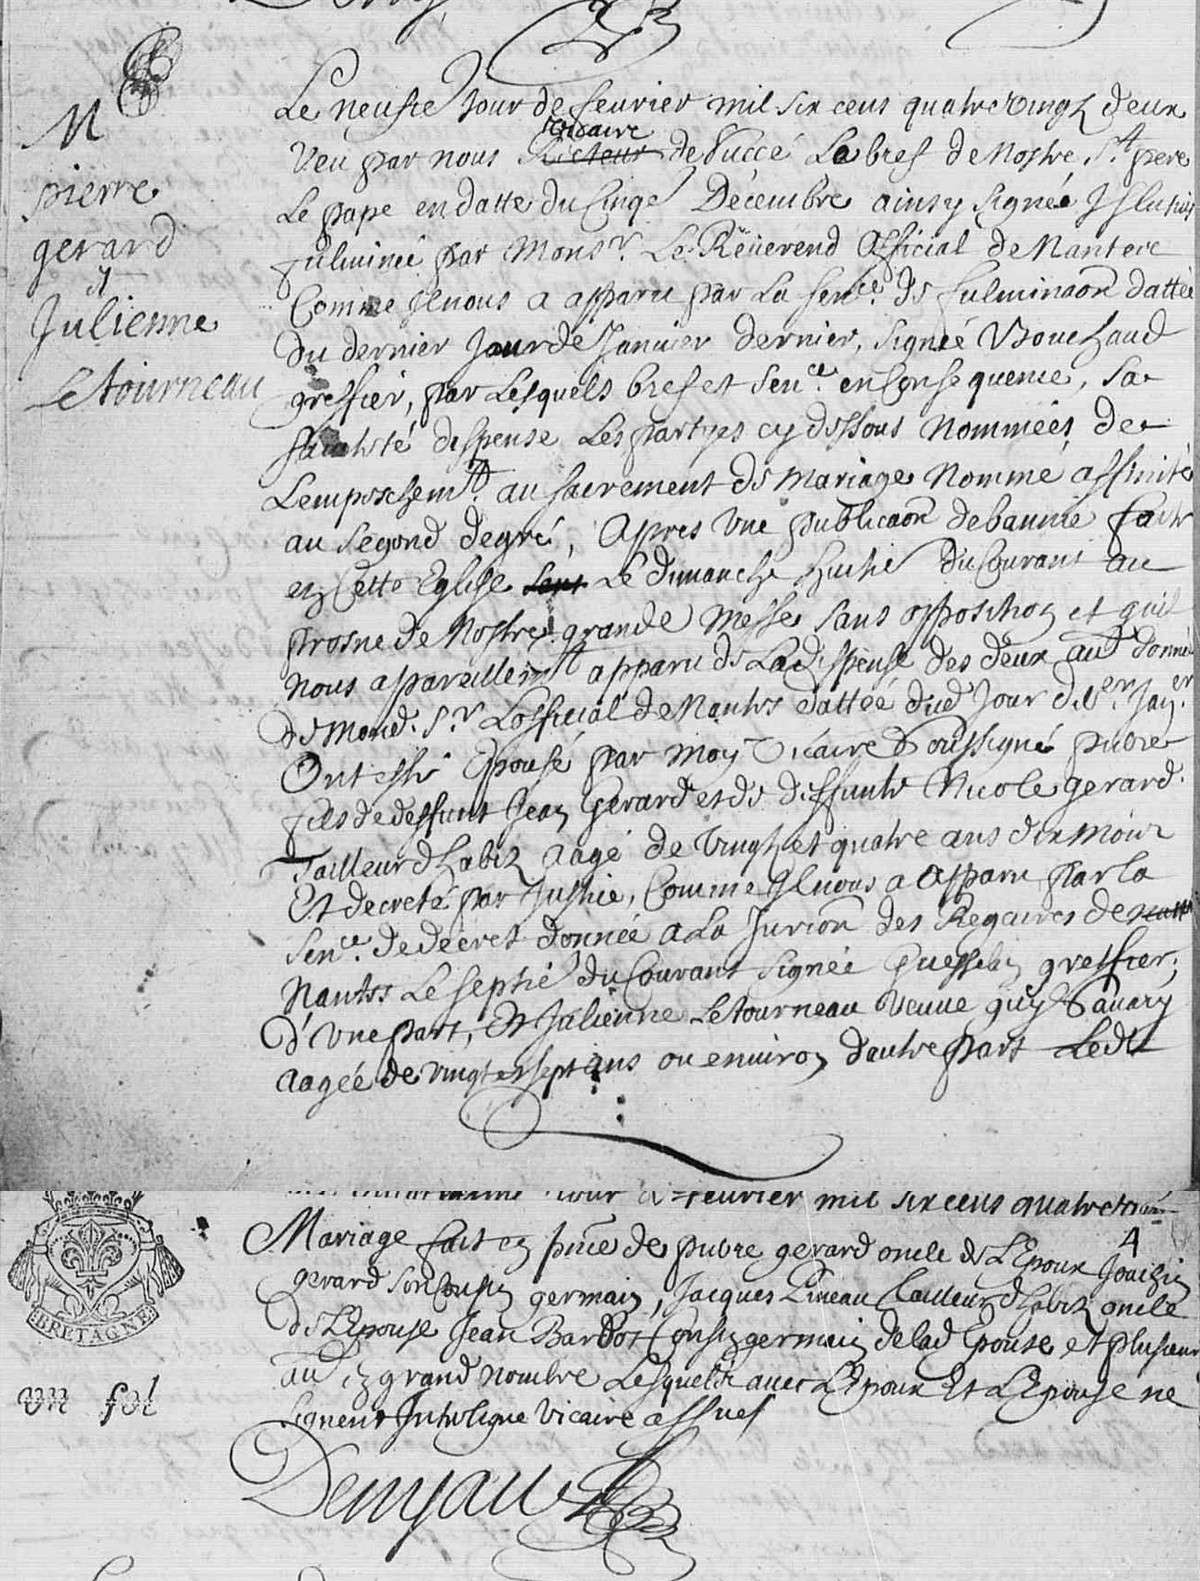 M
pierre
gerard
et
Julienne
Letourneau
Le neufie Jour de feurier mil six cens quatre vingz deux
vicaire
Veu par nous Recteur de Succé Le bref de Nostre St. pere
Le pape en datte du Cinqe Décembre ainsy signée
fulminé par Monsr. Le Reuerend Official de Nantes
Comme Il nous a apparu par La Sence. de fulminaon dattée
du dernier Jour de Januier dernier, signée Bouchaud
greffier, par Lesquels bref et Sence. en Consequence, Sa
Sainteté dispense Les partyes cy dessous Nommées de
Lempeschemt. au sacrement de Mariage Nommé affinité
au segond degré, Apres Vne publicaon de bannie faite
en Cette Eglise Le dimanche huitie du Courant au
prosne de Nostre grande Messe sans opposition et quil
nous a pareillemt apparu de La dispense des deux aues donné
de Mond. Sr Lofficial de Nantes dattée dud Jour der Janer
Ont esté Epousé par moy Vicaire Soussigné pierre
fils de deffunt Jean Gerard et de deffunte Nicole gerard
Tailleur d'habiz aagé de Vingt et quatre ans dix mois
Et decreté par Justice, Comme Il nous a apparu par la
Sence. de decret donnée a La Jurion des Regaires de
Nantes Le septie du Courant signée greffier,
D'vne part, Et Julienne Letourneau Veuue guy Sauary
aagée de vingt et sept ans ou enuiron d'autre part Ledt
Jour de feurier mil six cens quatre
Mariage fait en pnce de pierre gerard oncle de L'Epoux
gerard son Cousin germain, Jacques Pineau Tailleur d'habiz oncle
de L'Epouse Jean Bardot Cousin germain de lad Epouse et plusieurs
aues en grand nombre Lesquels auec L'Epoux Et L'Epouse ne
signent Interligne Vicaire
Demyau
BRETAGNE
vn sol